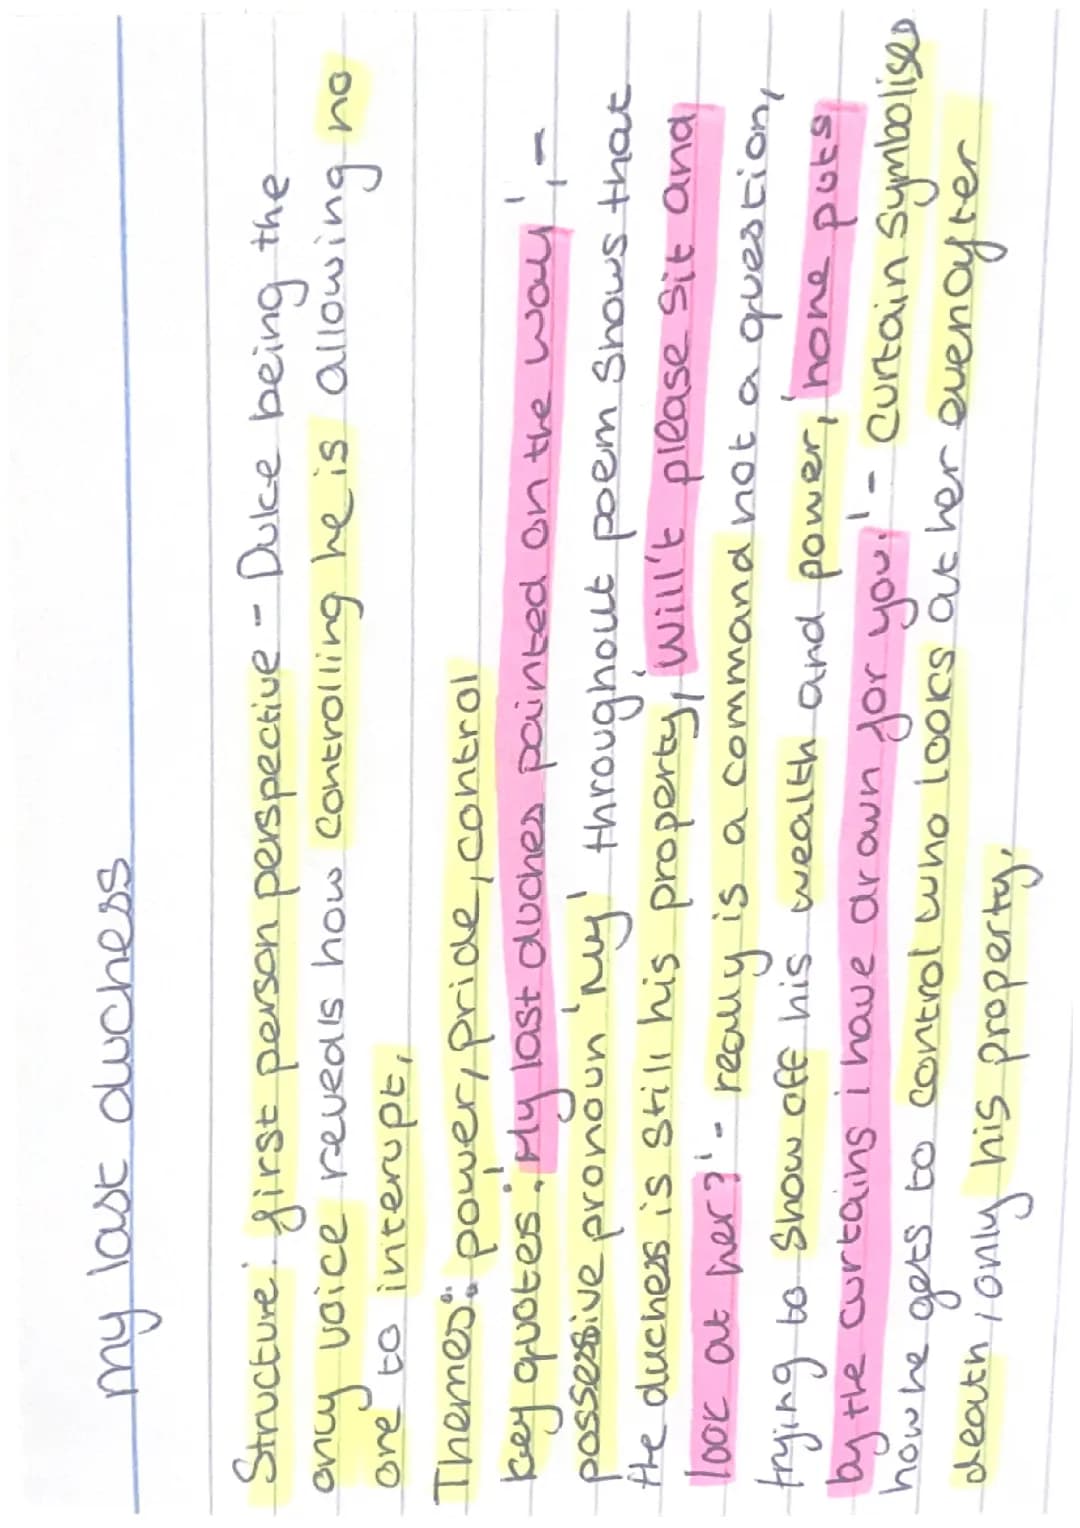 my last duchess
Structure: first person perspective - Duke being the
only voice reveals how controlling he is allowing no
one to interrupt,
Themes: power, pride, control
key quotes: 'My last duches painted on the wall', -
possessive pronoun 'My' throughout poem shows that
the duchess is still his property, 'Will't please sit and
look at her?' - really is a command not a question,
trying to show off his wealth and power, 'none puts
by the curtains i have drawn for you.' - curtain symbolises
how he gets to control who looks at her even after
death, only his property,